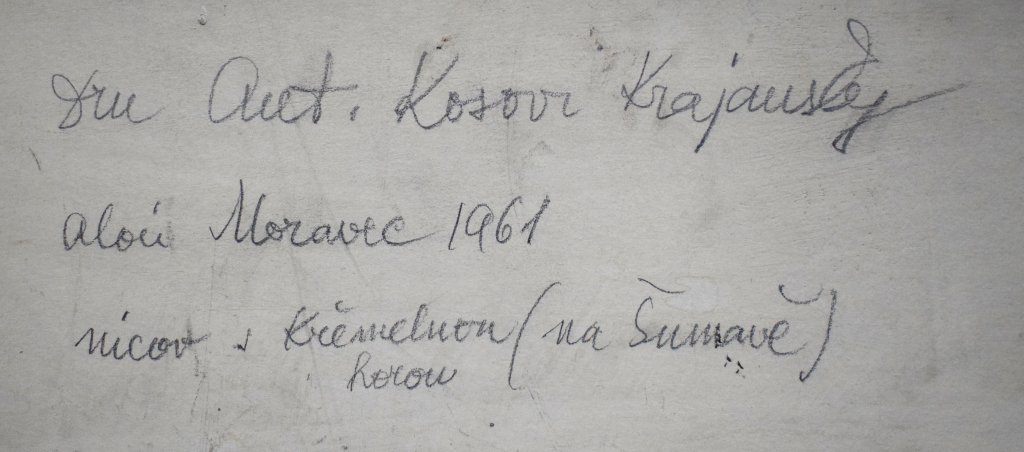 Dru Ant. Kosovi Krajanský
Alois Moravec 1961
Nicov s Křemelnou (na Šumavě)
horou